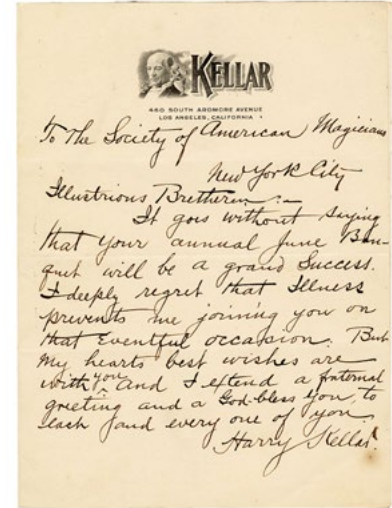 KELLAR
460 SOUTH ARDMORE AVENUE
LOS ANGELES, CALIFORNIA
To The Society of American Magicians
New York City
Illustrious Bretheren:-
It goes without saying
that your annual June Ban-
quet will be a grand Success.
I deeply regret that Illness
prevents me joining you on
that Eventful occasion. But
my hearts best wishes are
with you And I extend a fraternal
greeting and a God-bless you, to
each and every one of you.
Harry Kellar.